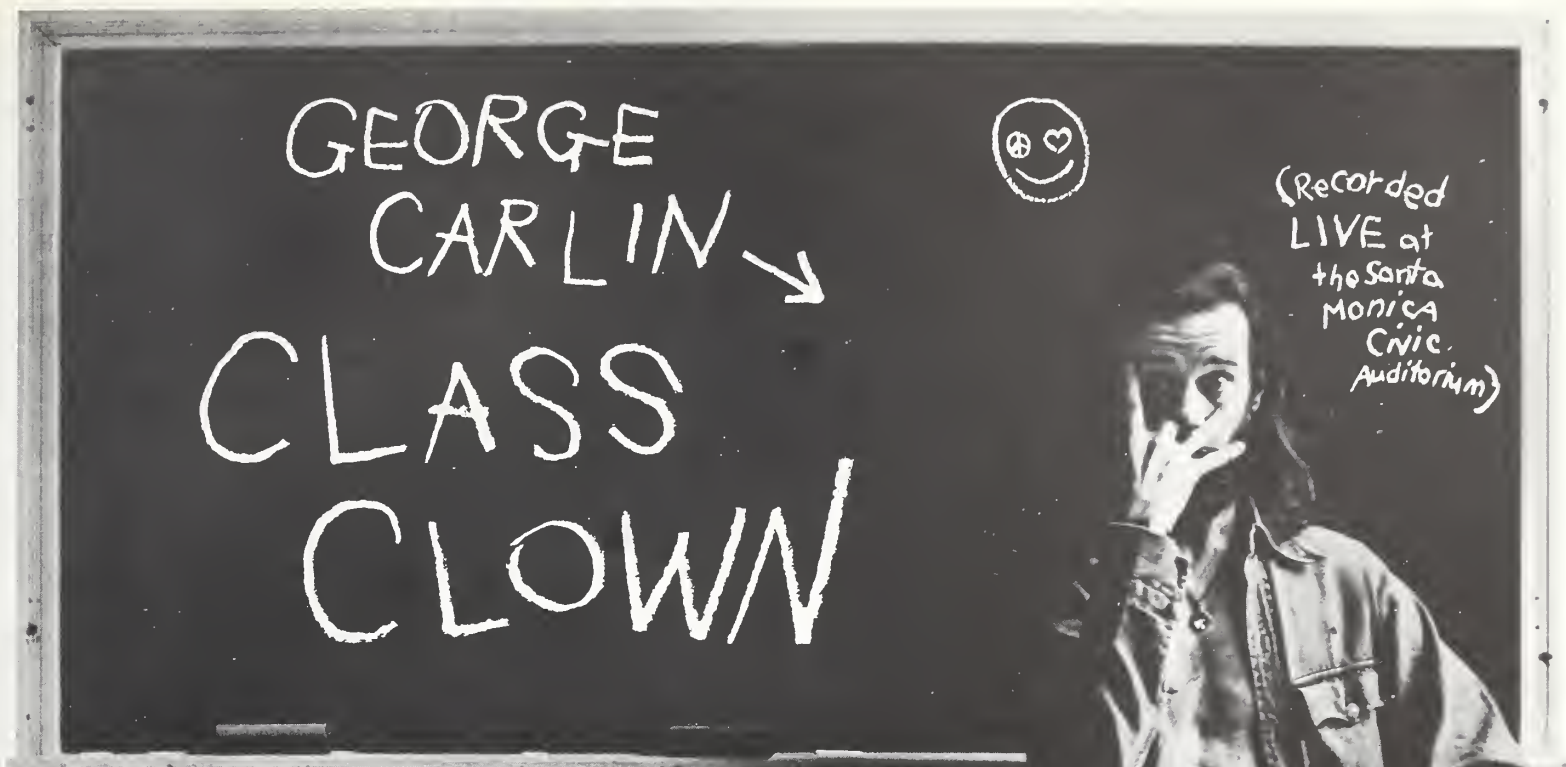 GEORGE
CARLIN
CLASS
CLOWN
(Recorded
LIVE at
the Santa
MONICA
Civic
Auditorium)